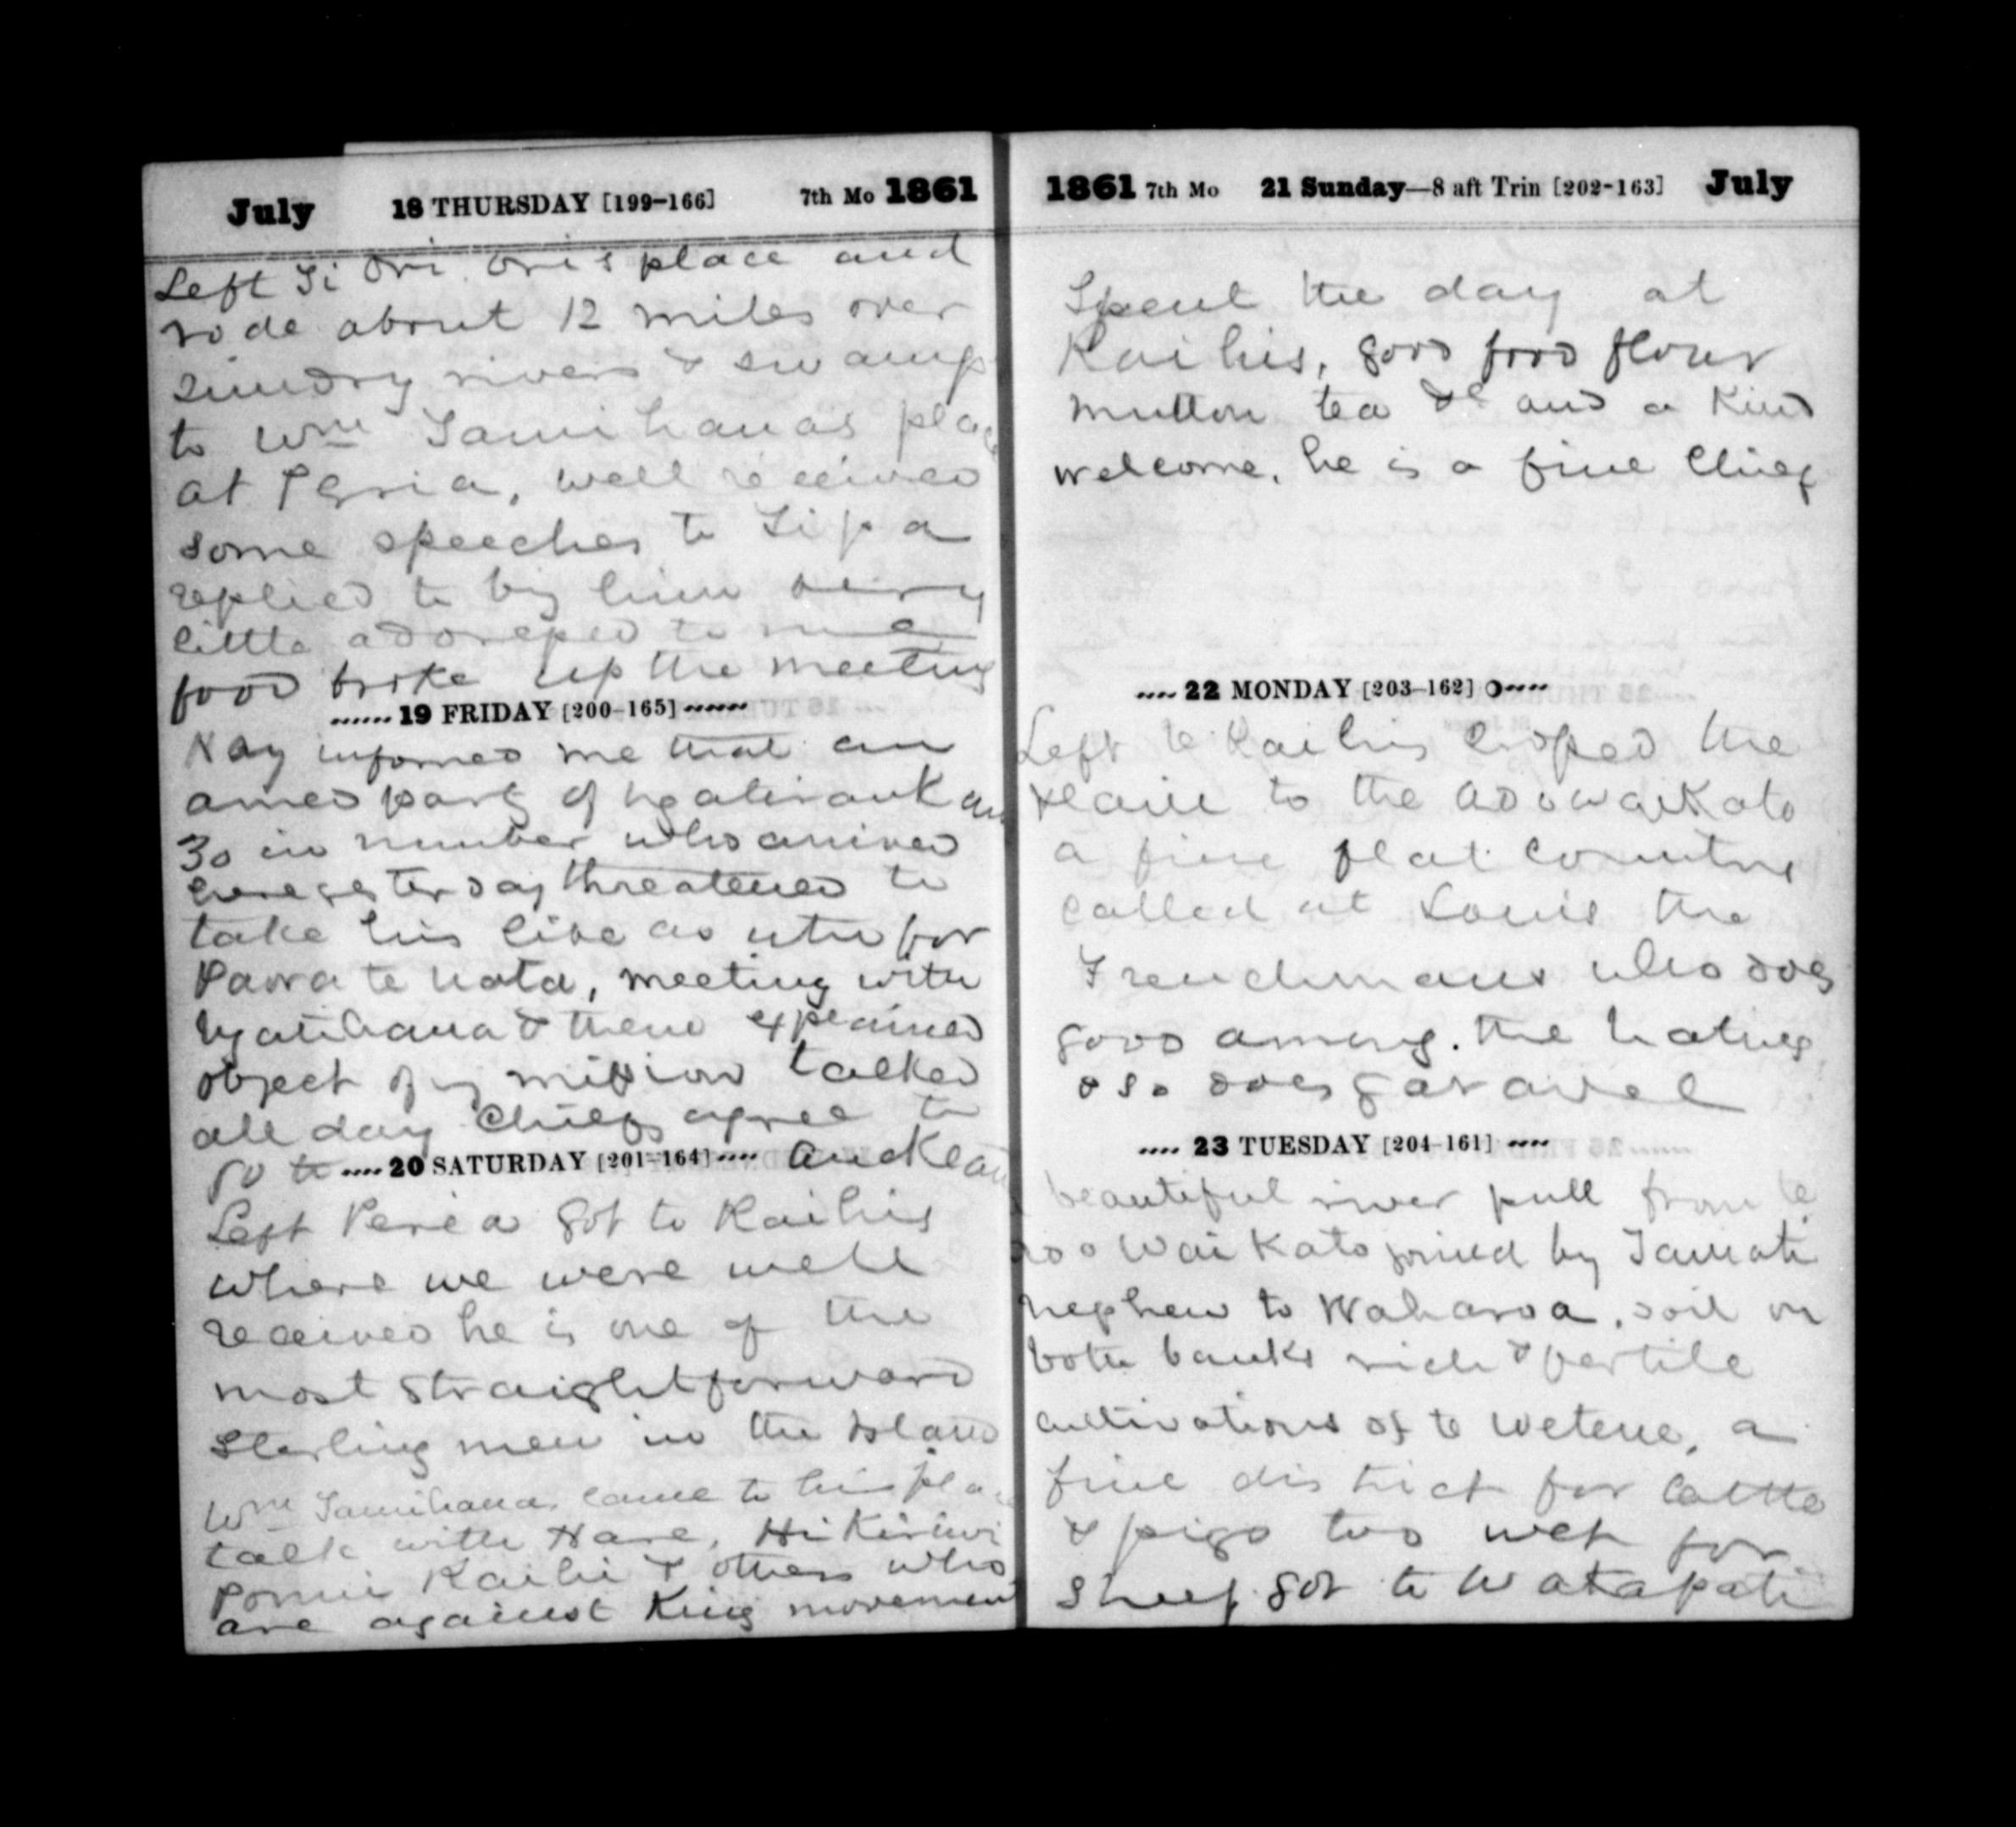 July 18 THURSDAY [199-166] 7th Mo 1861
Left Ti Ori Ori's place and
rode about 12 miles over
sundry rivers & swamp
to Wm Tamihanas place
at Peria, well received
some speeches to Tipa
replied to by him very
little addressed to me
food broke up the meeting
19 FRIDAY [200-165]
Kay informed me that an
armed party of
30 in number who arrived
here yesterday threatened to
take his life as utu for
Paora te uata, meeting with
Ngatihaua & there explained
object of my mission talked
all day Chiefs agree to
go to Auckland
20 SATURDAY [201-164]
Left Peria got to Raihis
where we were well
received he is one of the
most straightforward
sterling men in the Island
Wm Tamihana came to his place
talk with Hare, Hikiriwi
Pomui Raihi & others who
are against King movement
1861 7th Mo 21 Sunday—8 aft Trin [202-163] July
Spent the day at
Raihis, good food flour
mutton tea &c and a kind
welcome. he is a fine Chief
22 MONDAY [203-162]
Left te Raihis crossed the
plain to the Aoowaikato
a fine flat country
called at Louis the
Frenchmans who does
good among. the natives
& so does Garavel
23 TUESDAY [204-161]
beautiful river pull from te
aoo Waikato joined by Tamati
nephew to Waharoa. soil on
both banks rich & fertile
cultivations of te Wetene, a
fine district for cattle
& pigs too wet for
sheep. got to Watapati